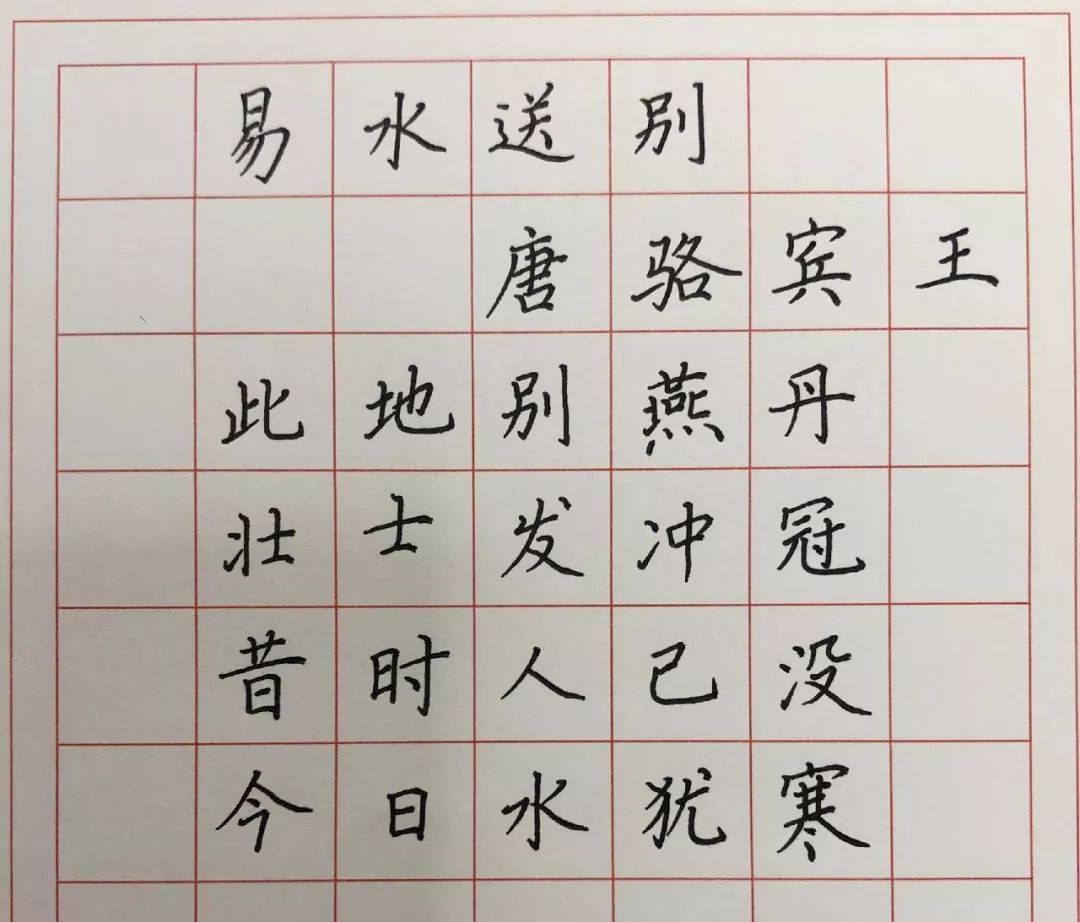 易水送别
唐骆宾王
此地别燕丹
壮士发冲冠
昔时人已没
今日水犹寒